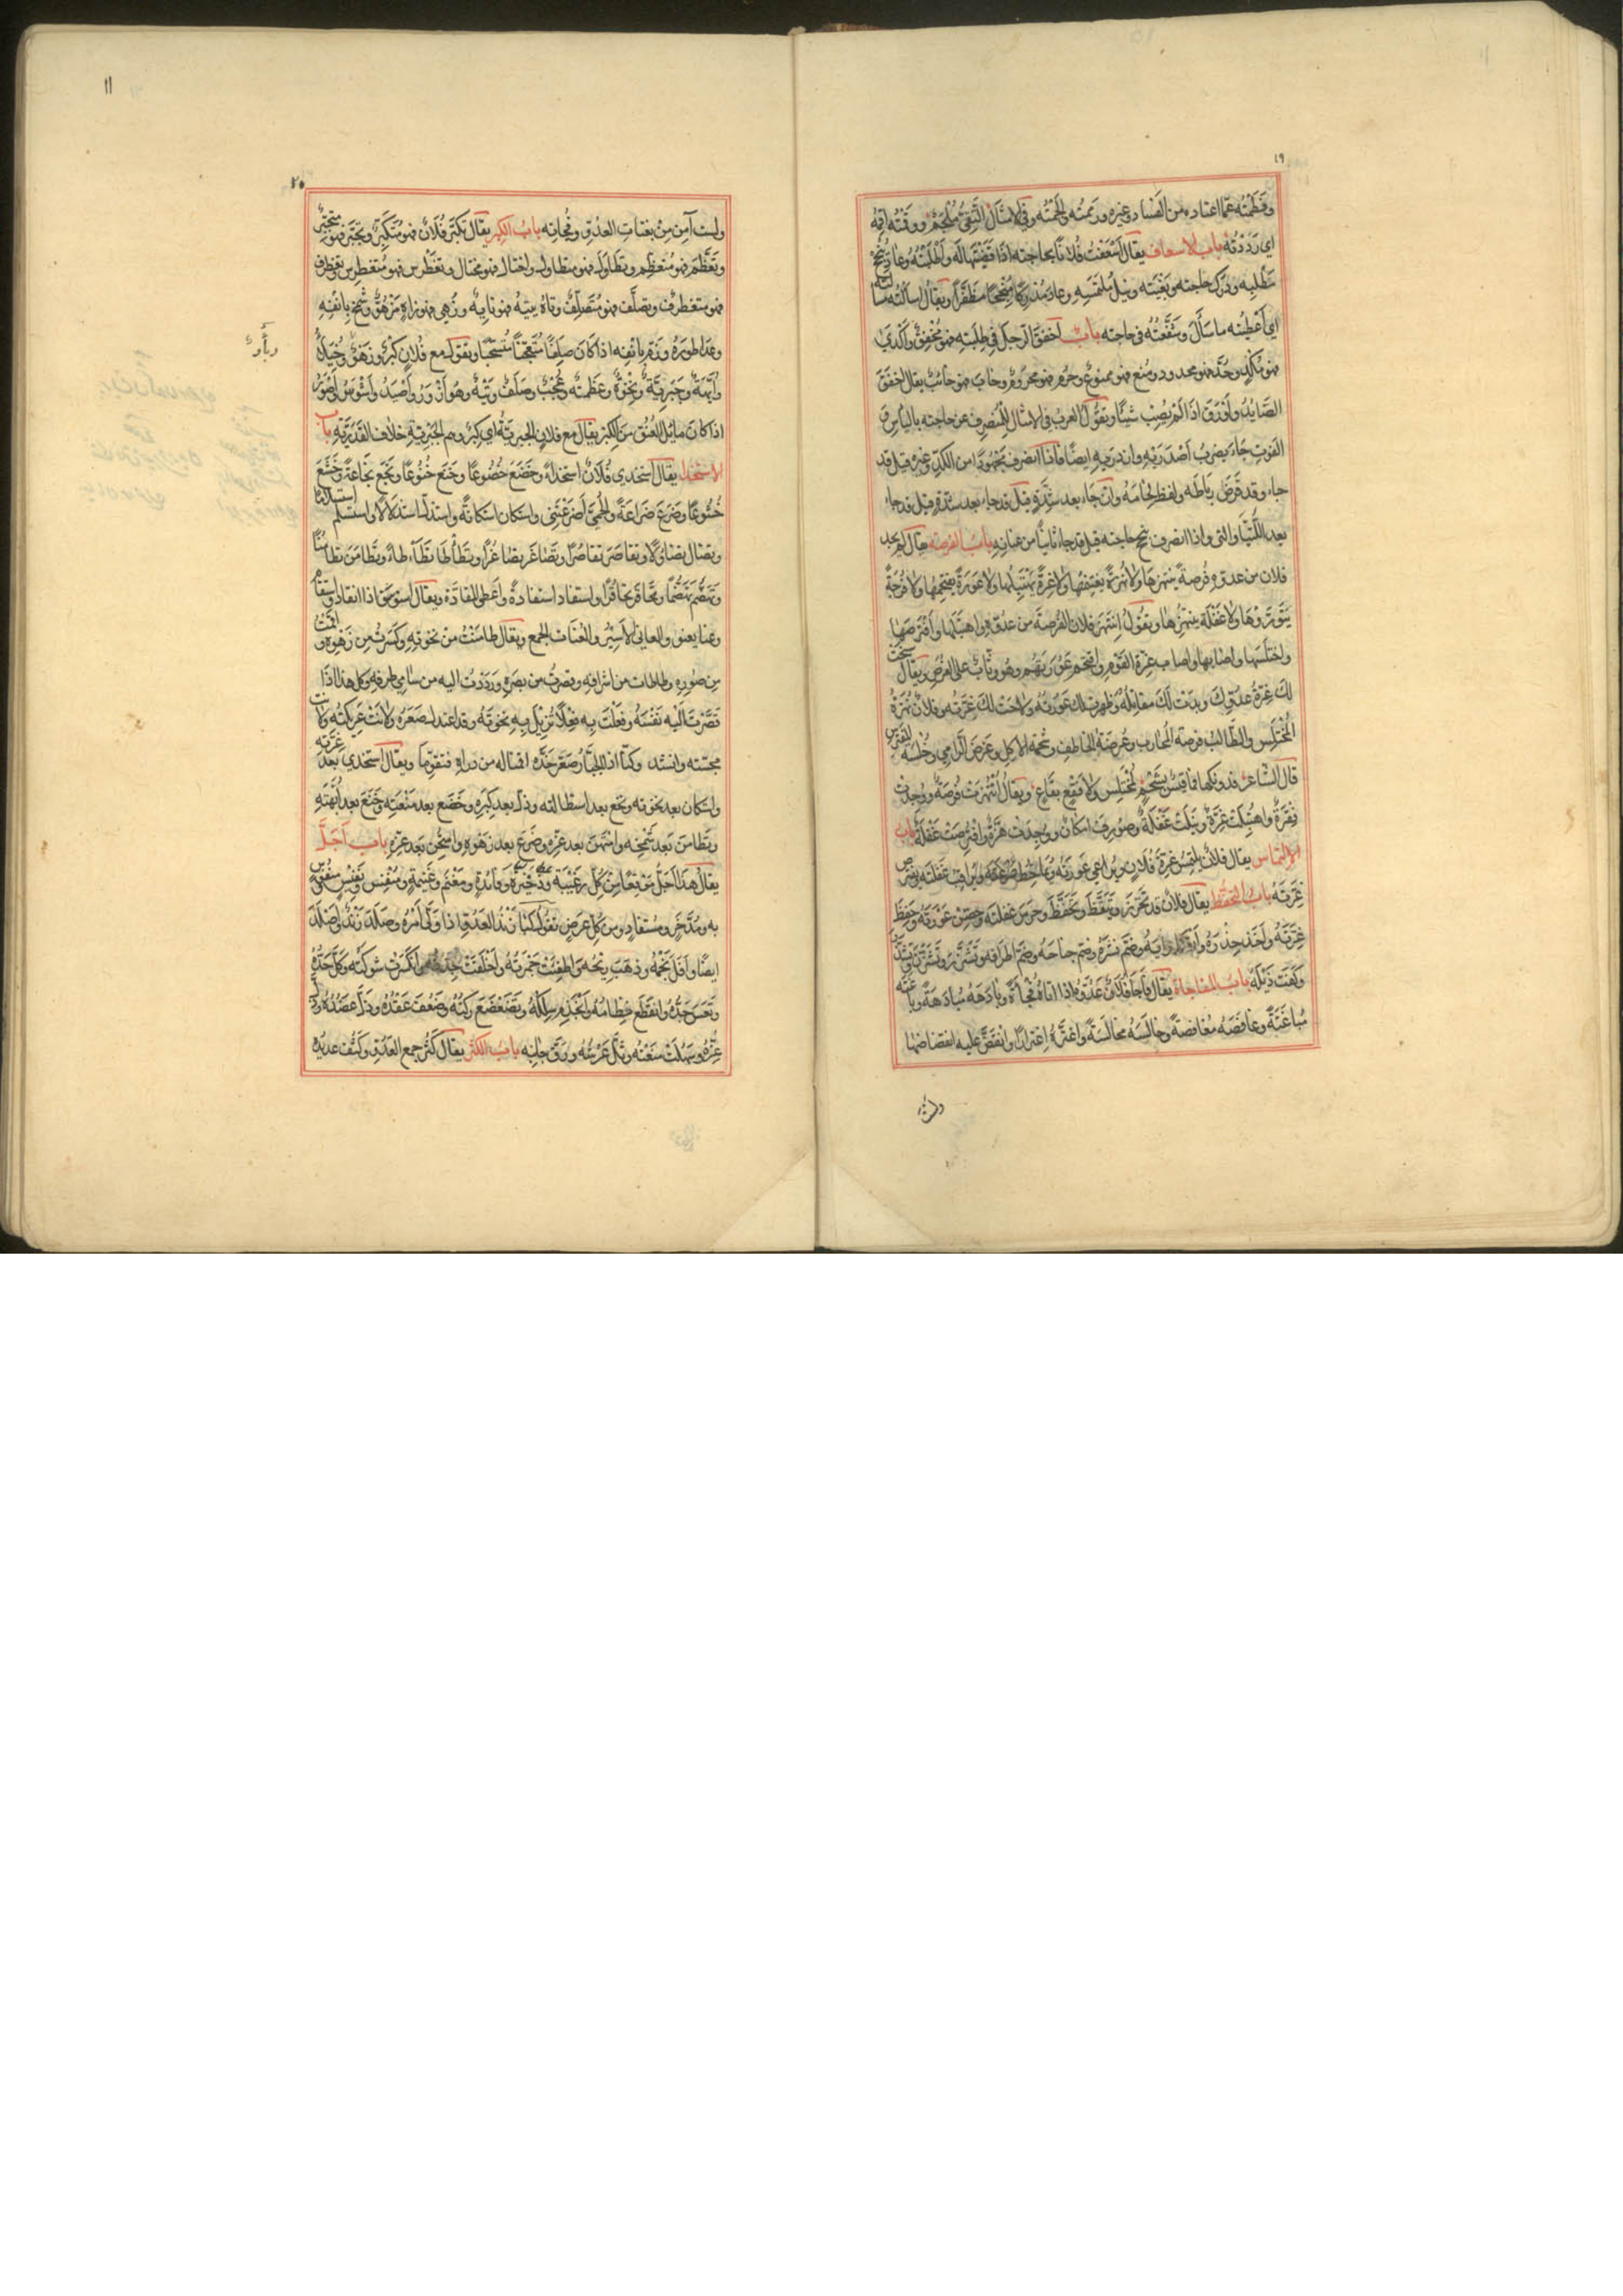 ١٩
وفطمته عما اعتاده من الفساد وغيره وزممته والجمته وفي الامثال التقي ملجم ووقته اقمه
اي رددته باب الاسعاف يقال اسعفت فلانا بحاجته اذا قضيتها له واطلبته وعاد بنجح
مطلبه ودرك حاجته وبغيته ونيل ملتمسه وعاد مدركا منجحا مظفرا ويقال اسألته مسألته
اي اعطيته ما سأل وشفعته في حاجته باب اخفق الرجل في طلبته فهو مخفق وأكدى
فهو مكد وحد فهو محدود ومنع فهو ممنوع وحرم فهو محروم وخاب فهو خائب يقال اخفق
الصايد وأورق اذا لم يصب شيئا وتقول العرب في الامثال للمنصرف عن حاجته بالياس ق
الفوت جاء يضرب أصدريه وازدريه ايضا فاذا انصرف مجهودا من الكد وغيره قيل قد
جاء وقد قرض رباطه ولفظ لجامه وان جاء بعد شدة قيل قد جاء بعد شدة قيل قد جاء
بعد اللتيا والتي واذا انصرف بنجح حاجته قيل قد جاء ثانيا من عنانه باب الفرصة يقال لم يجد
فلان من عدوه فرصة ينتهزها ولا نهزة يغتنمها ولا غرة يهتبلها ولا عورة يقتحمها ولا فرجة
يتورها ولا غفلة ينتهزها وتقول انتهز فلان الفرصة من عدوه واهتبلها وافترصها
واختلسها واصابها واصاب غرة القوم واقتحم عورتهم وهو وثاب على الفرص ويقال سنحت
لك غرة عدوك وبدت لك مقاتله وظهرت لك عورته ولاحت لك غرته وفلان نهزة
المختلس والطالب فرصة المحارب وعرضة الخاطف وشحمة الاكل وغرض الرامي وخلسة المفترس
قال الشاعر فدونكها فما قيس بشحم لمختلس ولا فقع بقاع ويقال انتهزت فرصة ووجدت
فقرة واهتبلت غرة وتنيلت غفلة وصودف امكان ووجدت هزة وافترصت غفلة باب
الالتماس يقال فلان يلتمس غرة فلان ويراعي عورته ويلاحظ غرته ويراقب غفلته يفترص
غرته باب التحفظ يقال فلان قد تحرز وتيقظ وتحفظ وحرس غفلته وحصن عورته وحفظ
غرته وأخذ حذره وضم نشره وضم جناحه وضم اطرافه وتشمر وتشزن وتشدد
وكفت ذيله باب المفاجاة يقال فاجأ فلان عدوه اذا اتاه فجأة وبادهه مبادهة وباغته
مباغتة وغافصه مغافصة وخالسه مخالسة واغتره اغترارا وانقض عليه انقضاضا
ولست
١١
٢٠
ولست آمن من بغتات العدو وفجاته باب الكبر يقال تكبر فلان فهو متكبر وتجبر فهو متجبر
وتعظم فهو متعظم وتطاول فهو متطاول واختال فهو مختال وتغطرس فهو متغطرس وتغطرف
فهو متغطرف وتصلف فهو متصلف وتاه يتيه فهو تايه وزهي فهو زاه مزهو وشمخ بانفه
وعدا طوره وزم بانفه اذا كان صلفا متبجحا وتقول مع فلان كبر وزهو وخيلاء
وابهة وجبرية ونخوة وعظمة وعجب وصلف وتيه وهو أزور وأصيد واشوس واصور
وبأو
اذا كان مائل العنق من الكبر يقال مع فلان الجبرية اي كبر وهم الجبرية خلاف القدرية باب
الاستخذا يقال استخذى فلان استخذاء وخضع خضوعا وخنع خنوعا ونخع نخاعة وخشع
خشوعا وضرع ضراعة والحمى أضرعتني واستكان استكانة واستذل استذلالا واستسلم استسلاما
وتضاءل تضاولا وتقاصر تقاصرا وتصاغر تصاغرا وتطأطأ تطأطاء وتطامن تطامنا
وتهضم تهضما وتحاقر تحاقرا واستقاد استقادة واعطى المقادة ويقال استوسق اذا انقاد واستقام
وعنا يعنو والعاني الاسير والعناة الجمع ويقال طامنت من نخوته وكسرت من زهوه واقمت
من صوره وطاطات من اشرافه وقصرت من بصره ورددت اليه من سامي طرفه وكل هذا اذا
قصرت اليه نفسه وفعلت به فعلا تزيل به نخوته وقد اعتدل صعره ولانت عريكته ولانت
مجسته وانشد وكنا اذا الجبار صعر خده اقمنا له من دراه فتقوما ويقال استخذى بعد عزته
واستكان بعد نخوته ونخع بعد استطالته وذل بعد كبره وخضع بعد منعته وخنع بعد أبهته
وتطامن بعد شمخه وامتهن بعد عزه وضرع بعد زهوه وامتحن بعد عزه باب اجل
يقال هذا اجل موقعا من كل رغيبة وذخيرة وفائدة ومغنم وغنيمة ومنفس ونفيس منفوس
به ومدخر ومستفاد ومن كل عرض تقول كبا زند العدو اذا ولى امره وصلد زنده واصلد
ايضا وافل نجمه وذهب ريحه واطفئت جمرته واخلقت جدته وانكسرت شوكته وكل حده
وتعس جده وانقطع نظامه وانجذم سلكه وتضعضع ركنه وضعف عقده وذل عضده وذل
عزه وسهلت منعته وثل عرشه ورق جانبه باب الكثر يقال كثر جمع العدو وكثف عديده